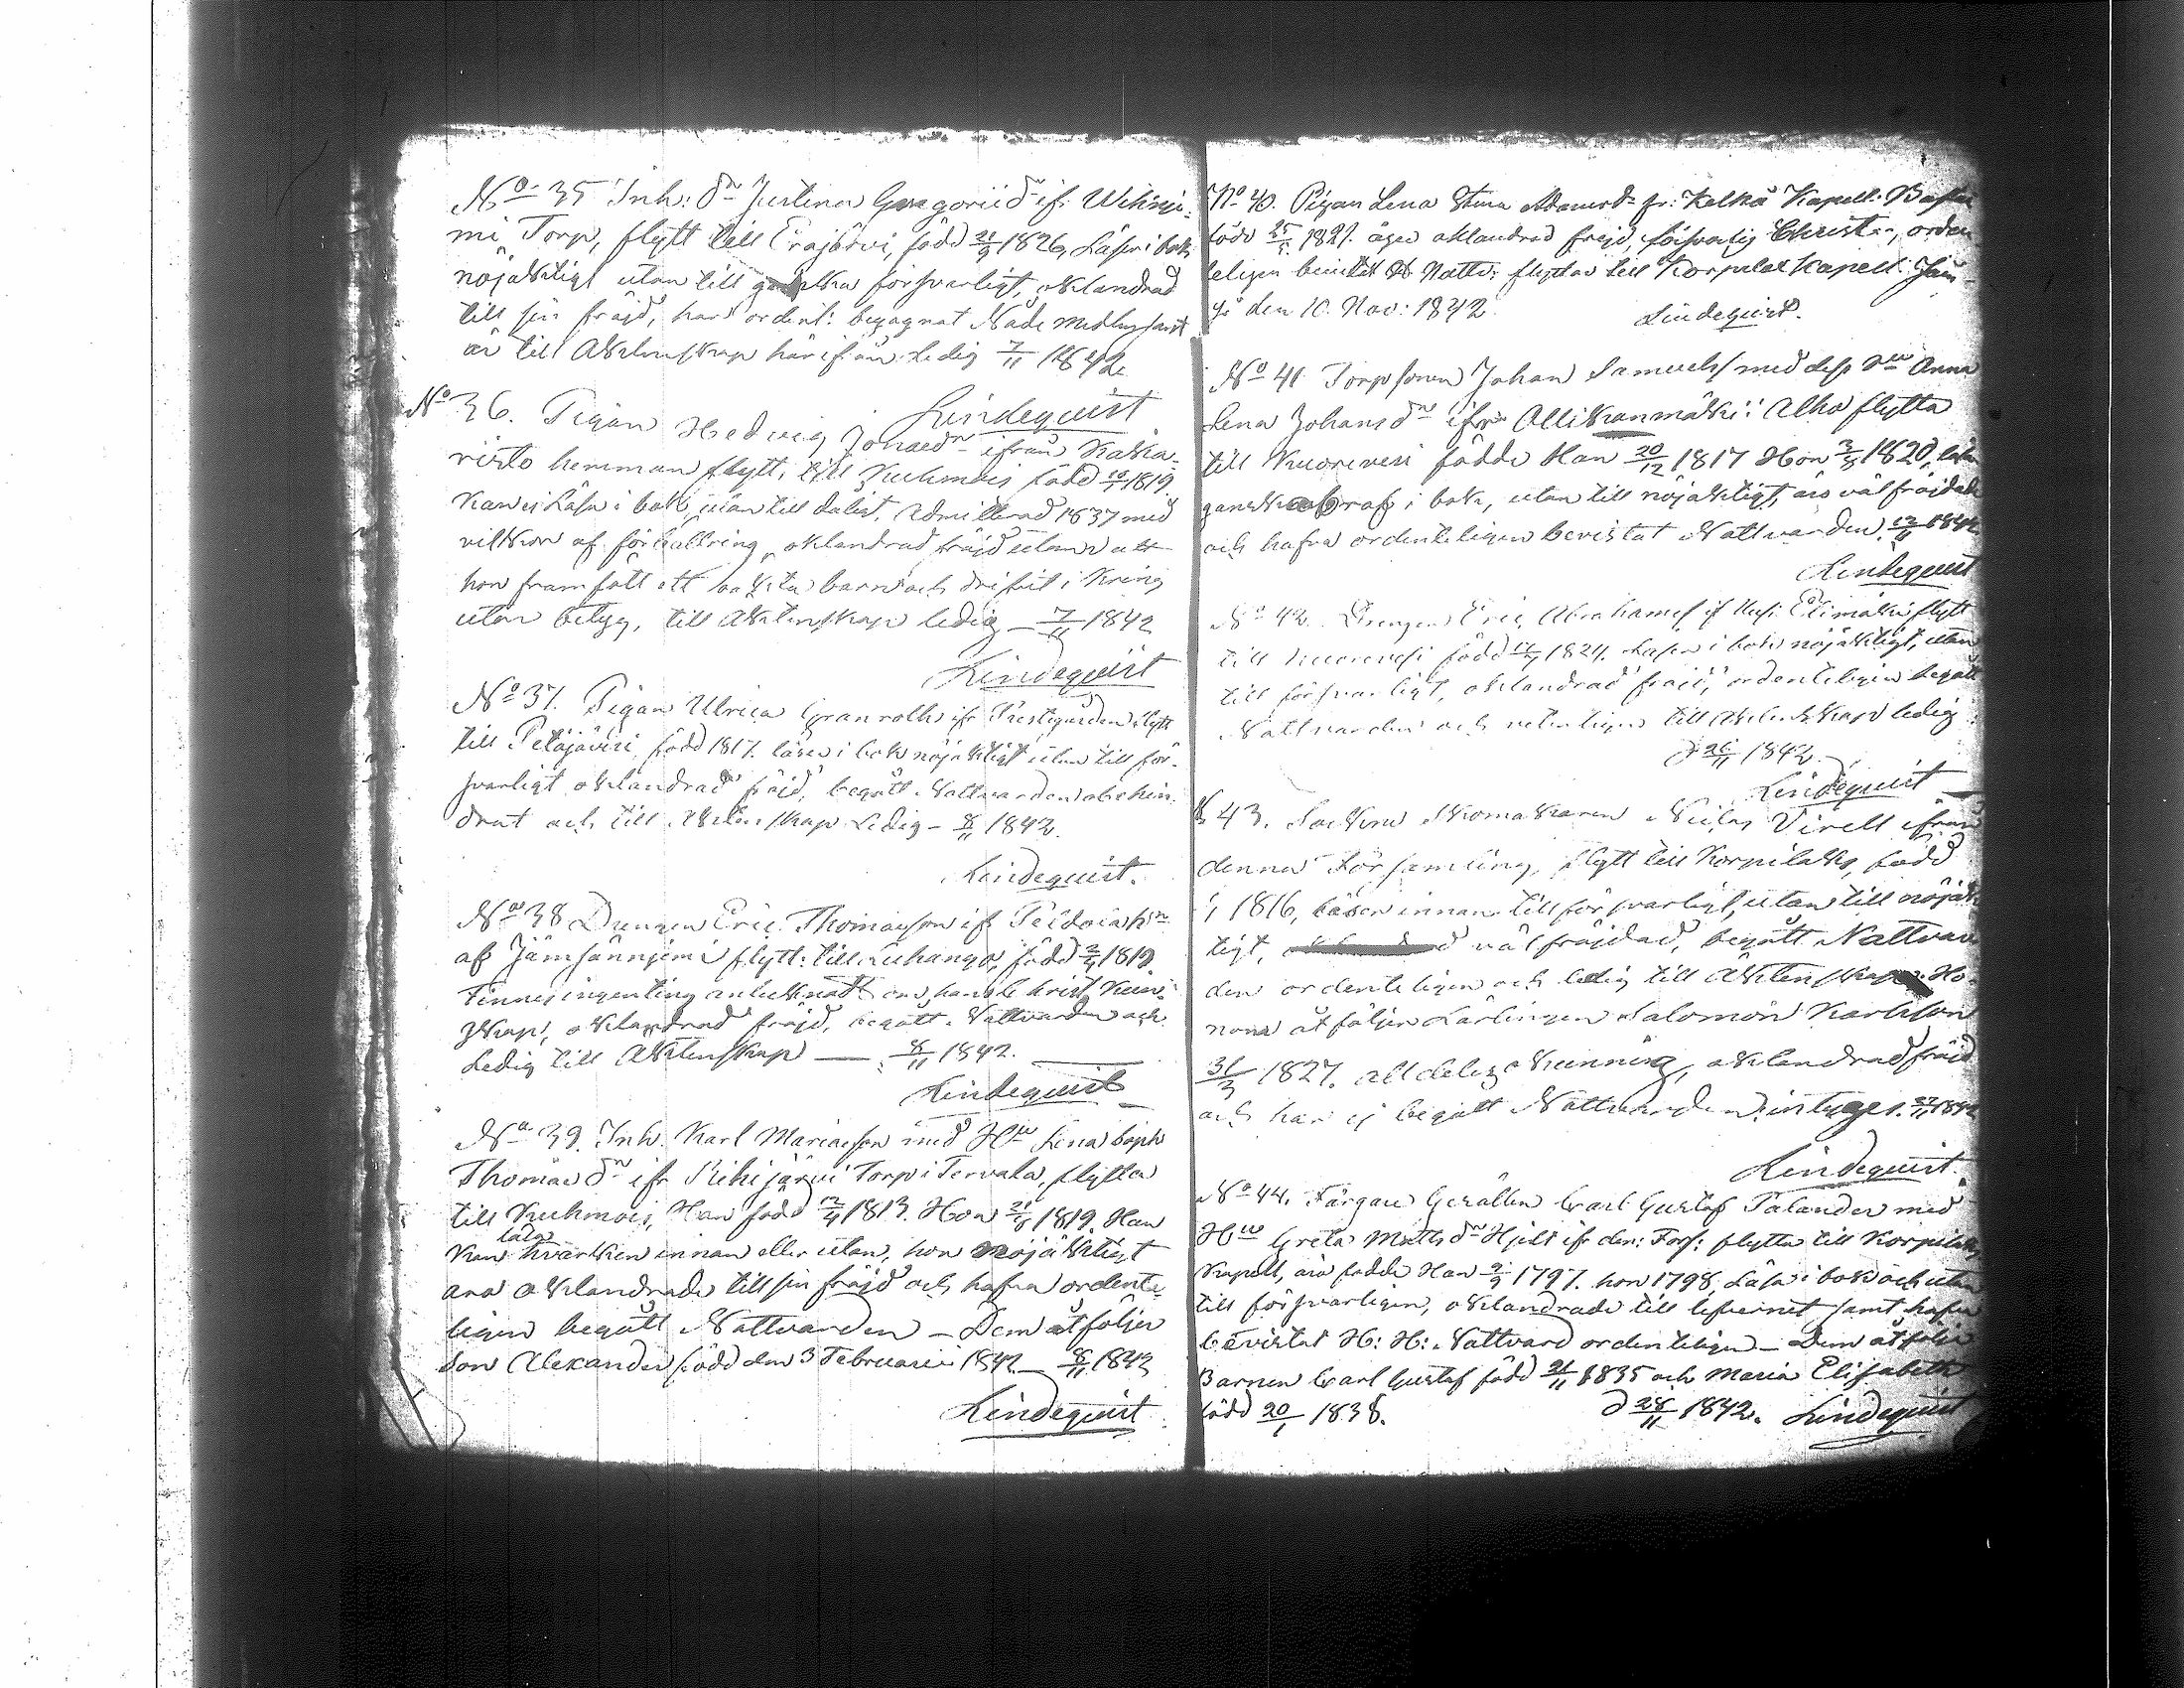 No 35 Inh: dr Justina Gregoriid ifr Wihini-
mi Torp, flytt till Erajärvi, född 21/9 1826, Läser i bok
nöjaktigt utan till ganska försvarligt, oklandrad
till sin fräjd, har ordent: begagnat Nådemedlen samt
är till Äktenskap härifrån Ledig 7/11 1842
Lindequist
No 36. Pigan Hedvig Jonaedr ifrån Kaka-
risto hemman flytt, till Kuhmois född 10/1 1819
kan ej Läsa i bok, utan till dåligt, Admitterad 1837 med
villkor af förhållring, oklandrad fräjd utom att
hon framfött ett oäkta barn och drifvit i kring
utan betyg, till Äktenskap ledig 7/11 1842
Lindequist
No 37. Pigan Ulrica Granroth ifr Prestgården flytt
till Petäjävesi född 1817. läser i bok nöjaktigt utan till för-
svarligt oklandrad fräjd, begått Nattvarden obehin-
drat och till Äktenskap Ledig - 8/11 1842.
Lindequist.
No 38 Drengen Eric Thomasson ifr
af Jämsänniemi flytt: till Luhango, född 2/2 1819
Finnes ingenting antecknadt om hans Christ kun-
skap, oklandrad fräjd, begått Nattvarden och
Ledig till Äktenskap — 8/11 1842.
Lindequist
No 39. Inh. Karl Mariaeson med Hu Lena Soph
Thomae dr ifr Rihijärvi Torp i Tervala, flytta
till Kuhmois, Han född 12/4 1813. Hon 21/5 1819. Han
läsa
kan hvarken innan eller utan, hon nöjaktigt
äro oklandrade till sin fräjd och hafva ordente-
ligen begått Nattvarden - Dem åtföljer
Son Alexander född den 3 Februarii 1842 — 8/11 1842
Lindequist
No 40. Pigan Lena Stina Adamsdr fr: Kapell:
född 25/5 1821. äger oklandrad fräjd, försvarlig Christ-, orden
teligen bevistat H Nattv: flyttar till Korpilax Kapell. Jäm-
sä den 10. Nov: 1842.
Lindequist.
No 41 Torpsonen Johan Samuels/ med dess Hu Anna
Lena Johans dr ifrån Allikanmäki i Alho flytta
till Kuorevesi födde Han 20/12 1817 Hon 3/3 1820, läsa
ganska braf i bok, utan till nöjaktigt, äro väl fräjdade
och hafva ordenteligen bevistat Nattvarden. 12/11 1842.
Lindequist
No 42. Drengen Eric Abrahams/ if flytt
till Kuorevesi född 1824. Läser i bok nöjaktigt, utan
till försvarligt, oklandrad fräjd, ordenteligen begått
Nattvarden och veterligen till Äktenskap ledig
d 26/11 1842.
Lindequist
No 43. Sockne Skomakaren Niclas Virell ifrån
denna Församling, flytt till Korpilaks, född
1816, läser innan till försvarligt, utan till nöjak
tigt, väl fräjdad, begått Nattvar
den ordenteligen och ledig till Äktenskap. Ho-
nom åtföljer Lärlingen Salomon Karlsson
31/3 1827. alldeles okunnig, oklandrad fräjd
och har ej begått Nattvarden, intygas. 27/11 1842
Lindequist.
No 44. Färgare Gesällen Carl Gustaf Talander med
Hu Greta Matts dr Hjelt ifr den: Förs: flytta till Korpilaks
Kapell, äro födde Han 9/9 1797. hon 1798, Läsa i bok och utan
till försvarligen, oklandrade till lefvernet samt hafva
bevistat H: H: Nattvard ordenteligen - Dem åtfölja
Barnen Carl Gustaf född 21/11 1835 och Maria Elisabeth
född 20/1 1838.
d 28/11 1842. Lindequist